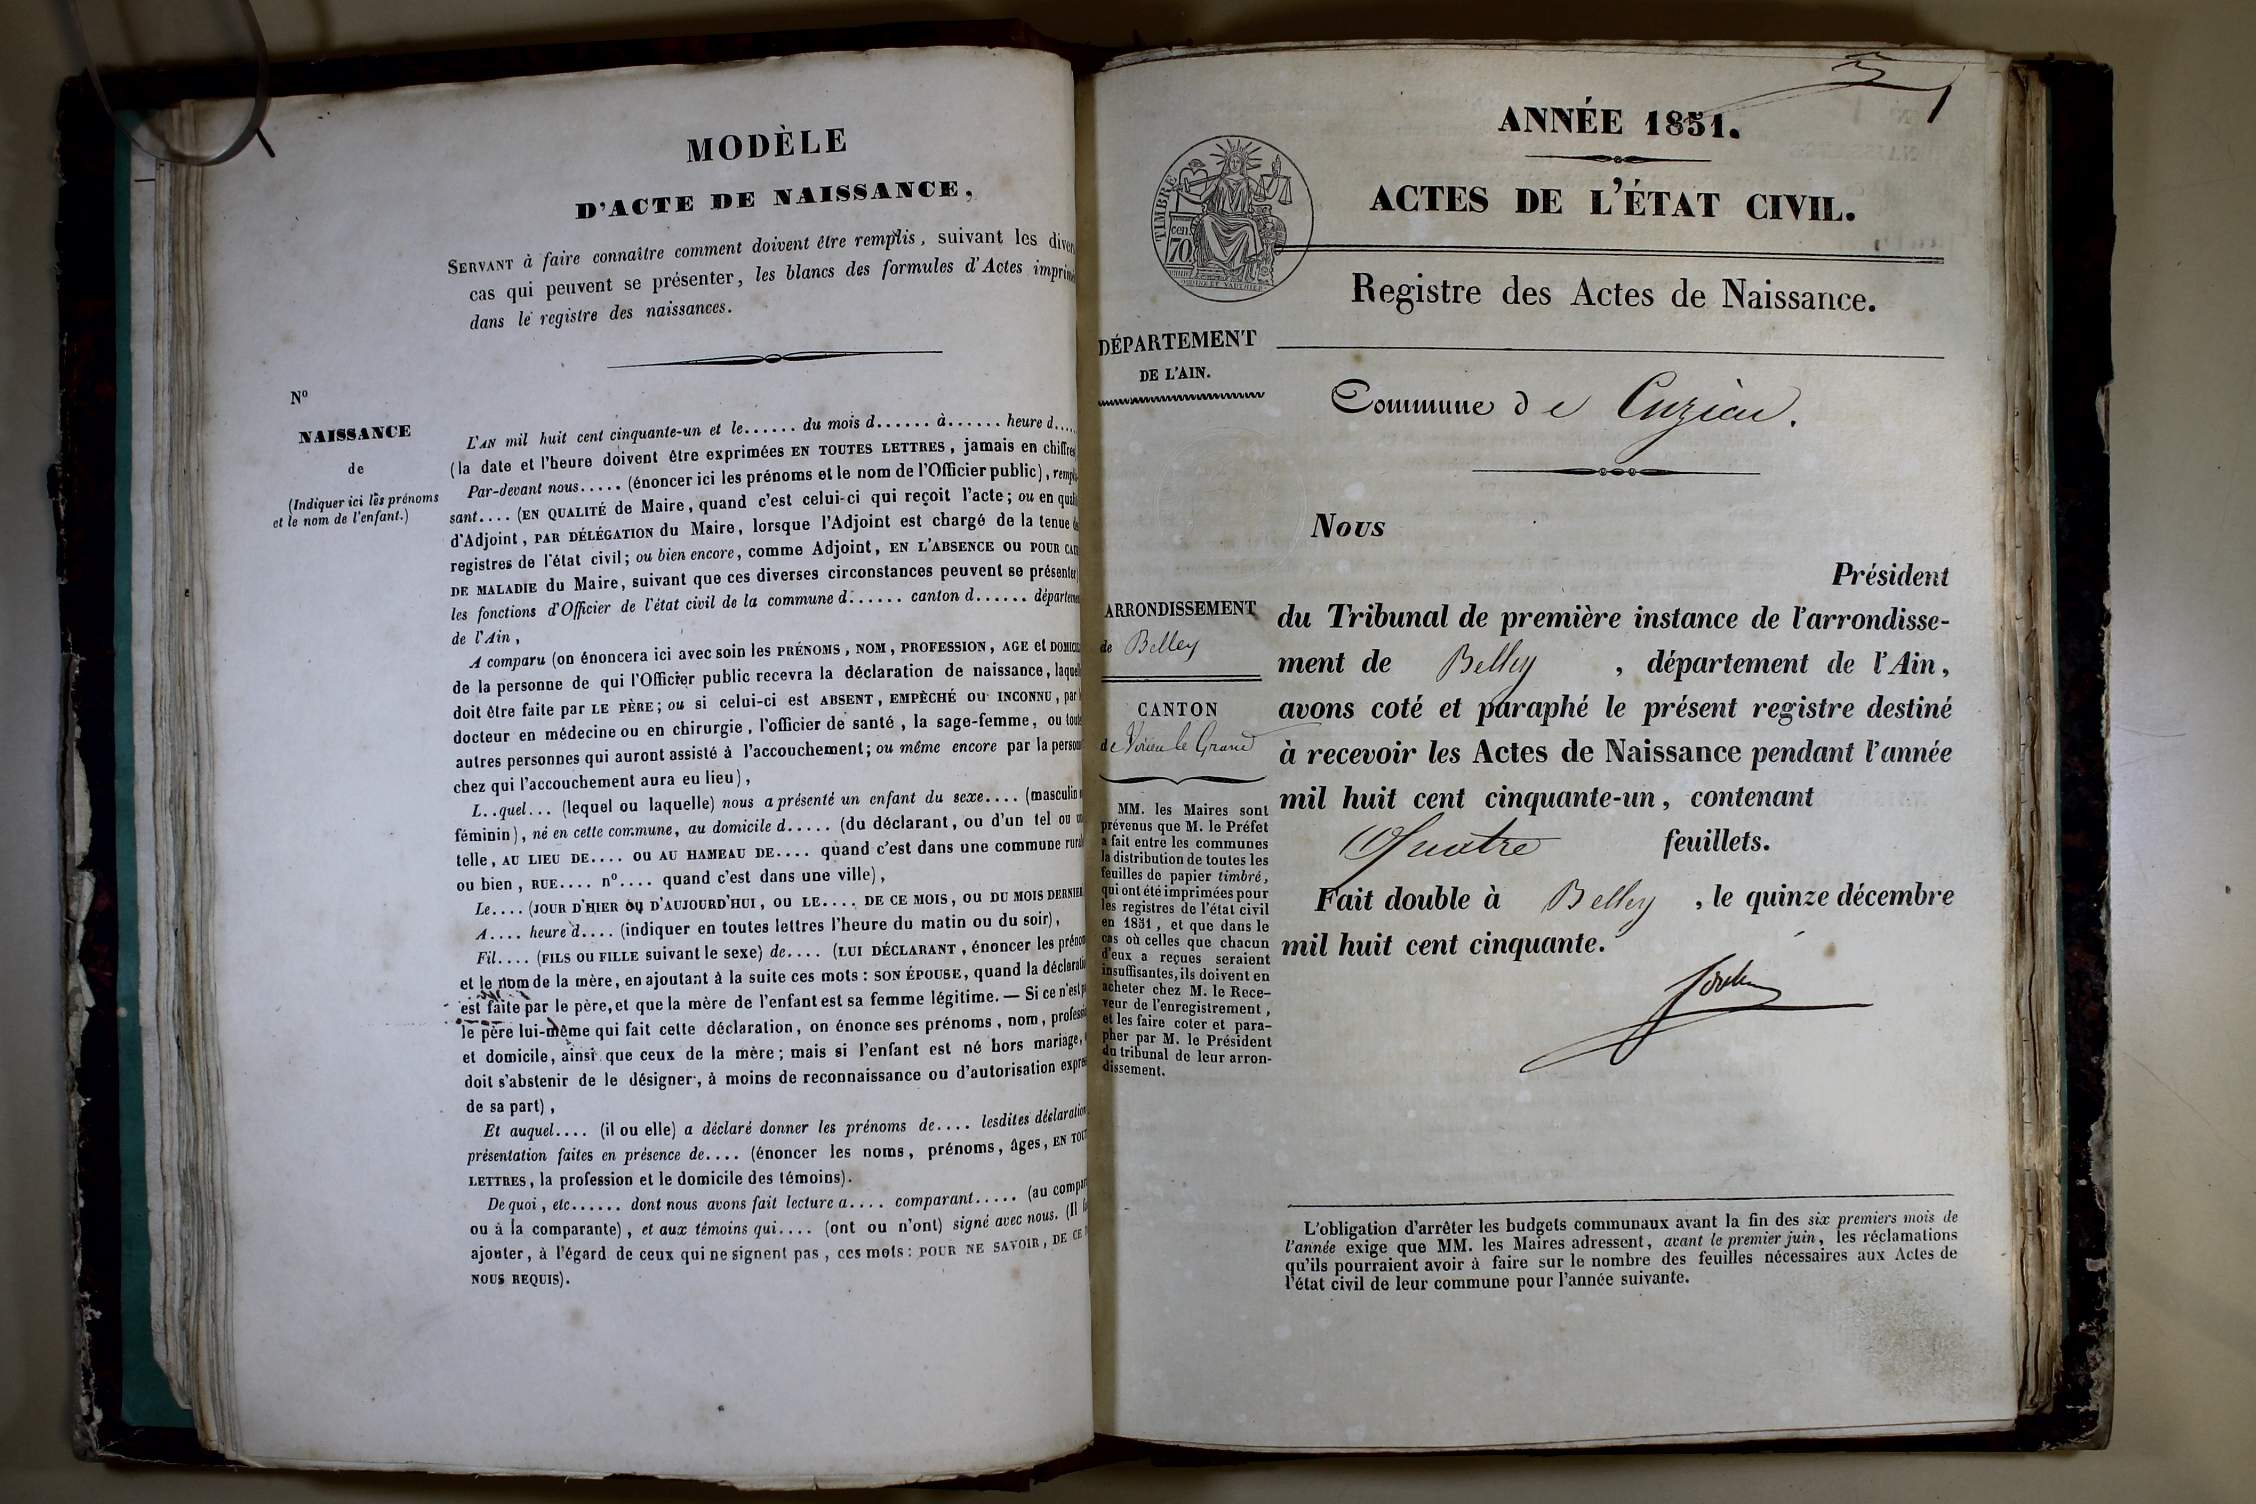 MODÈLE
D'ACTE DE NAISSANCE,
SERVANT à faire connaître comment doivent être remplis, suivant les divers
cas qui peuvent se présenter, les blancs des formules d'Actes imprimés
dans le registre des naissances.
No
NAISSANCE
de
(Indiquer ici les prénoms
et le nom de l'enfant.)
L'AN mil huit cent cinquante-un et le...... du mois d...... à...... heure d.....
(la date et l'heure doivent être exprimées EN TOUTES LETTRES, jamais en chiffres
Par-devant nous..... (énoncer ici les prénoms et le nom de l'Officier public), remplis-
sant.... (EN QUALITÉ de Maire, quand c'est celui-ci qui reçoit l'acte; ou en qualité
d'Adjoint, PAR DÉLÉGATION du Maire, lorsque l'Adjoint est chargé de la tenue des
registres de l'état civil; ou bien encore, comme Adjoint, EN L'ABSENCE OU POUR CAUSE
DE MALADIE du Maire, suivant que ces diverses circonstances peuvent se présenter)
les fonctions d'Officier de l'état civil de la commune d...... canton d...... département
de l'Ain,
A comparu (on énoncera ici avec soin les PRÉNOMS, NOM, PROFESSION, AGE et DOMICILE
de la personne de qui l'Officier public recevra la déclaration de naissance, laquelle
doit être faite par LE PÈRE; ou si celui-ci est ABSENT, EMPÊCHÉ OU INCONNU, par le
docteur en médecine ou en chirurgie, l'officier de santé, la sage-femme, ou toutes
autres personnes qui auront assisté à l'accouchement; ou même encore par la personne
chez qui l'accouchement aura eu lieu),
L..quel... (lequel ou laquelle) nous a présenté un enfant du sexe.... (masculin ou
féminin), né en cette commune, au domicile d..... (du déclarant, ou d'un tel ou une
telle, AU LIEU DE.... OU AU HAMEAU DE.... quand c'est dans une commune rurale
ou bien, RUE.... no.... quand c'est dans une ville),
Le.... (JOUR D'HIER OU D'AUJOURD'HUI, OU LE.... DE CE MOIS, OU DU MOIS DERNIER
A.... heure d.... (indiquer en toutes lettres l'heure du matin ou du soir),
Fil.... (FILS OU FILLE suivant le sexe) de.... (LUI DÉCLARANT, énoncer les prénoms
et le nom de la mère, en ajoutant à la suite ces mots: SON ÉPOUSE, quand la déclaration
est faite par le père, et que la mère de l'enfant est sa femme légitime. — Si ce n'est pas
le père lui-même qui fait cette déclaration, on énonce ses prénoms, nom, profession
et domicile, ainsi que ceux de la mère; mais si l'enfant est né hors mariage,
doit s'abstenir de le désigner, à moins de reconnaissance ou d'autorisation expresse
de sa part),
Et auquel.... (il ou elle) a déclaré donner les prénoms de.... lesdites déclaration
présentation faites en présence de.... (énoncer les noms, prénoms, âges, EN TOUTES
LETTRES, la profession et le domicile des témoins).
De quoi, etc...... dont nous avons fait lecture a.... comparant..... (au comparant
ou à la comparante), et aux témoins qui.... (ont ou n'ont) signé avec nous. (Il faut
ajouter, à l'égard de ceux qui ne signent pas, ces mots: POUR NE SAVOIR, DE CE
NOUS REQUIS).
1
ANNÉE 1851.
ACTES DE L'ÉTAT CIVIL.
TIMBRE
70 cen
Registre des Actes de Naissance.
DÉPARTEMENT
DE L'AIN.
Commune de Cuzieu.
Nous
Président
ARRONDISSEMENT
de Belley
CANTON
de Virieu le Grand
MM. les Maires sont
prévenus que M. le Préfet
a fait entre les communes
la distribution de toutes les
feuilles de papier timbré,
qui ont été imprimées pour
les registres de l'état civil
en 1851, et que dans le
cas où celles que chacun
d'eux a reçues seraient
insuffisantes, ils doivent en
acheter chez M. le Rece-
veur de l'enregistrement,
et les faire coter et para-
pher par M. le Président
du tribunal de leur arron-
dissement.
du Tribunal de première instance de l'arrondisse-
ment de Belley, département de l'Ain,
avons coté et paraphé le présent registre destiné
à recevoir les Actes de Naissance pendant l'année
mil huit cent cinquante-un, contenant
Quatre feuillets.
Fait double à Belley, le quinze décembre
mil huit cent cinquante.
L'obligation d'arrêter les budgets communaux avant la fin des six premiers mois de
l'année exige que MM. les Maires adressent, avant le premier juin, les réclamations
qu'ils pourraient avoir à faire sur le nombre des feuilles nécessaires aux Actes de
l'état civil de leur commune pour l'année suivante.